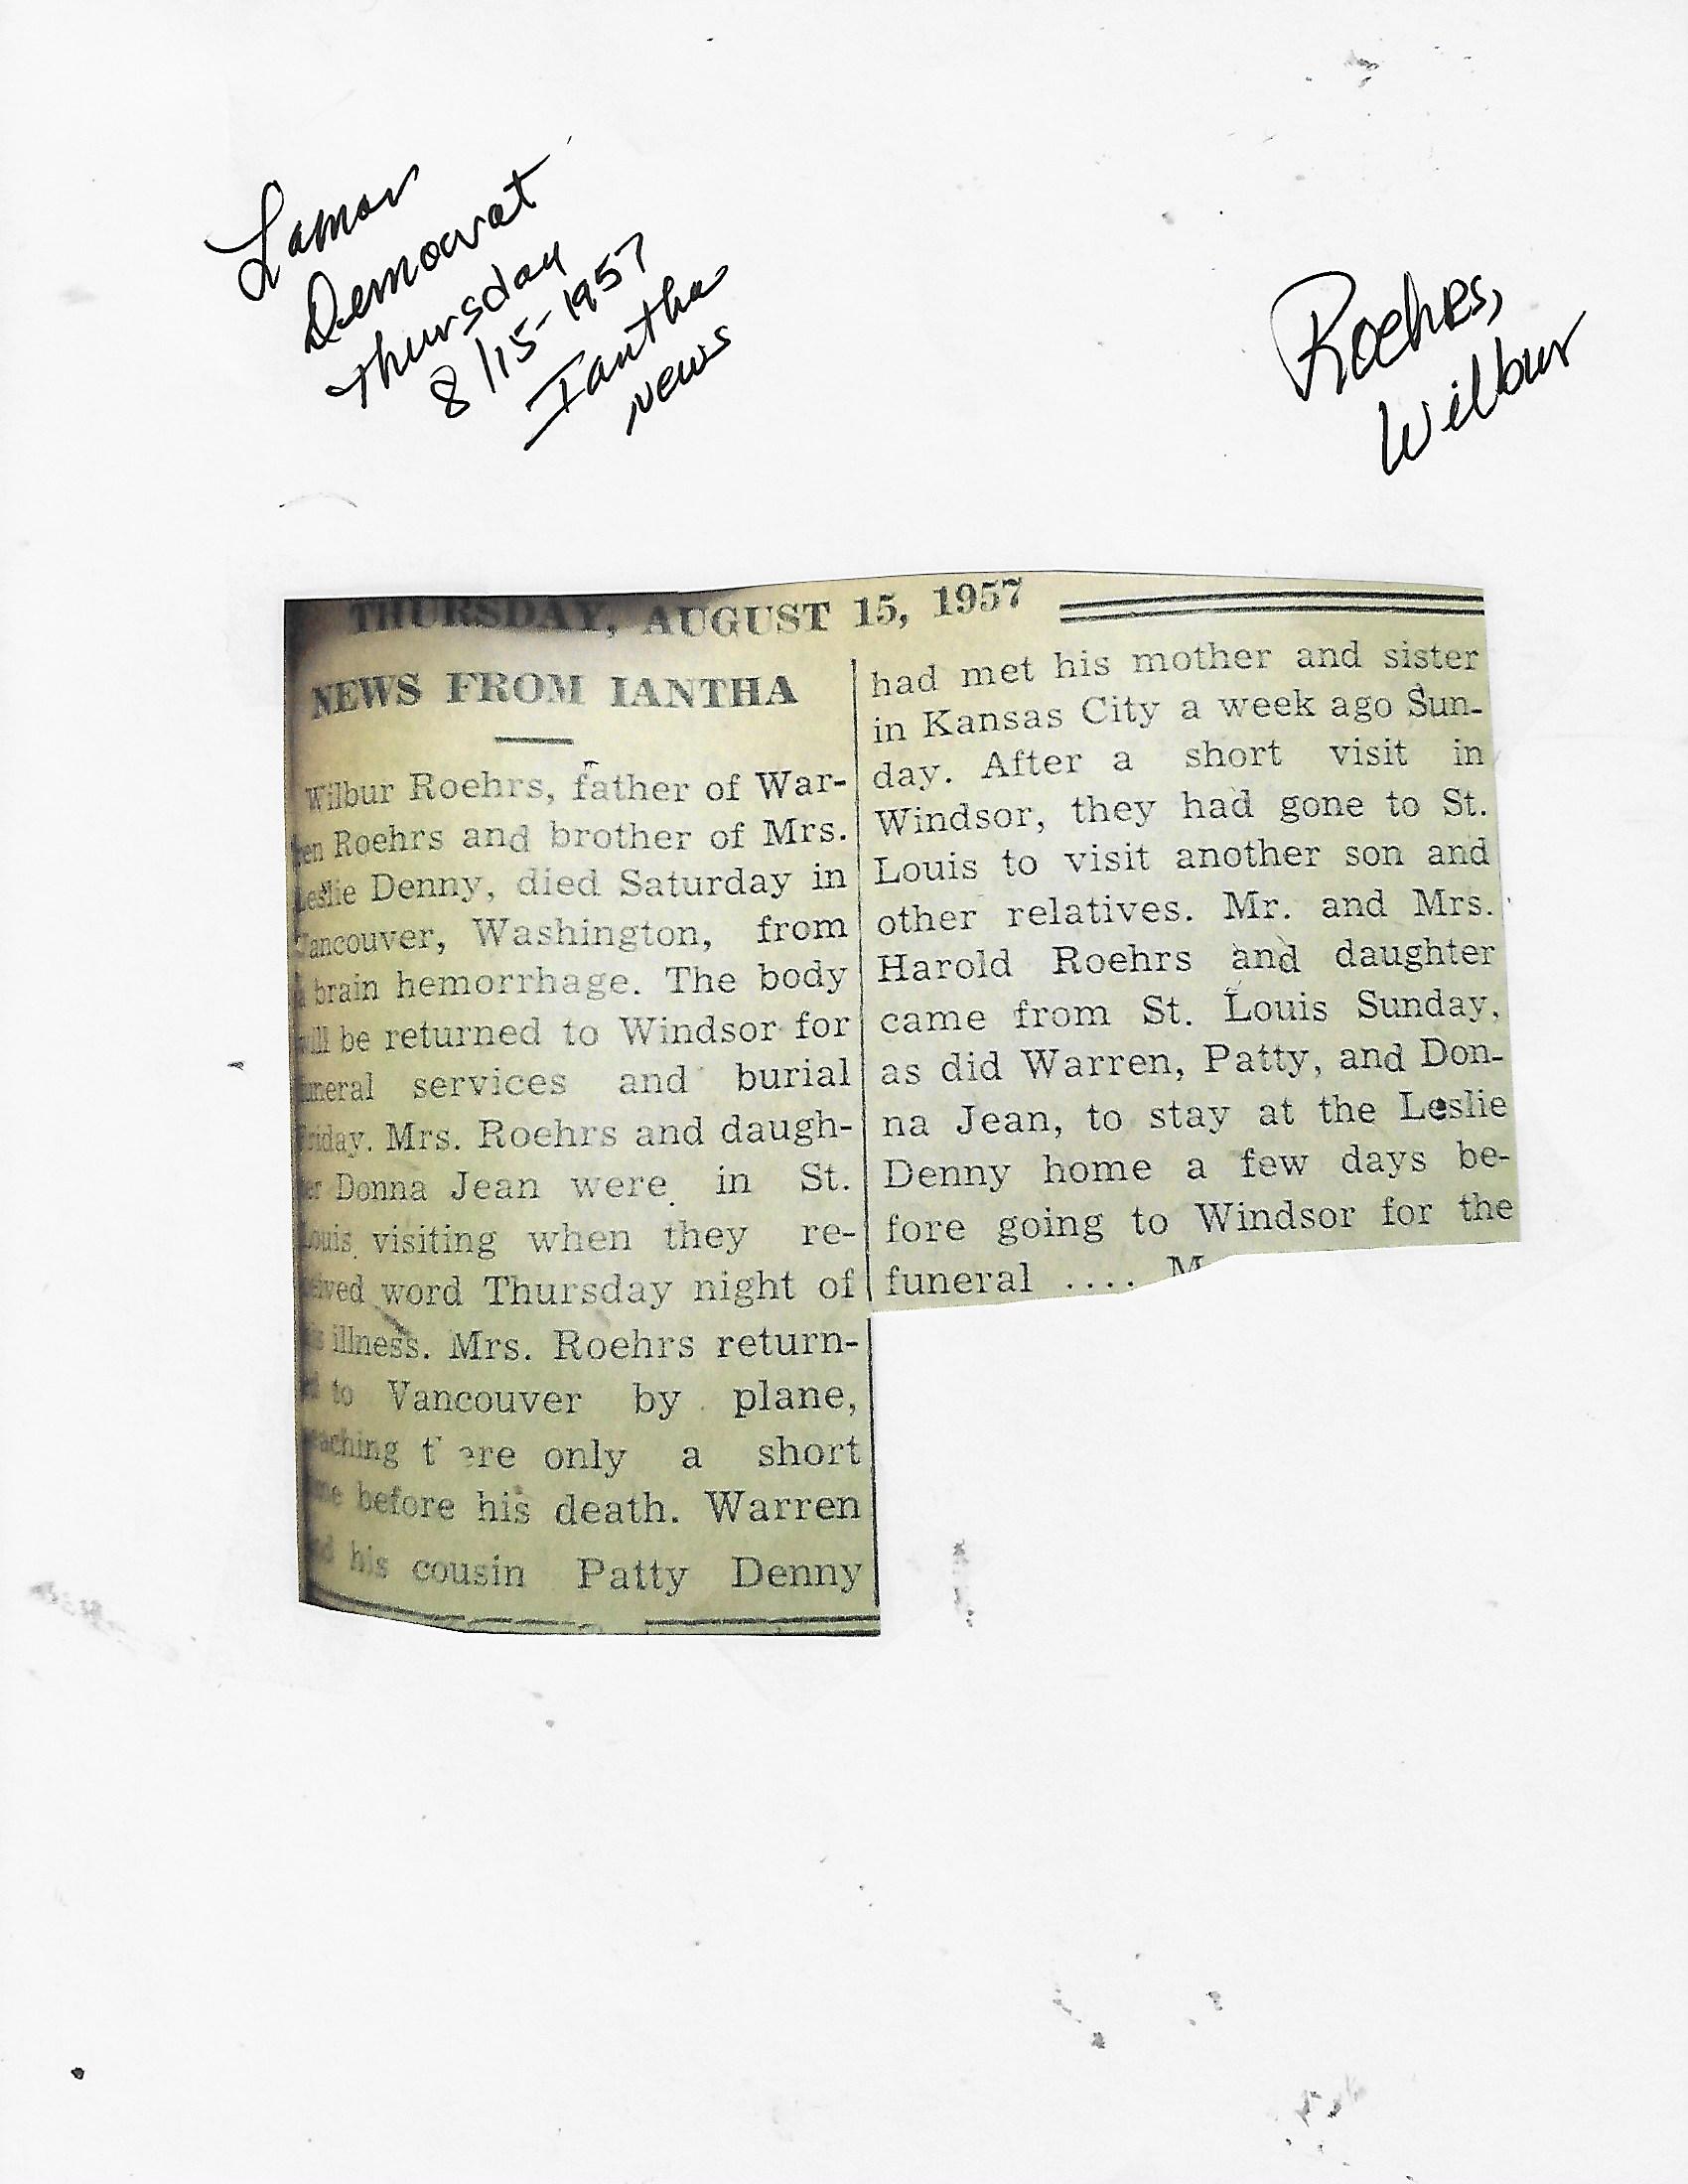 Lamar
Democrat
Thursday
8/15-1957
Iantha
News
Roehrs,
Wilbur
THURSDAY, AUGUST 15, 1957
NEWS FROM IANTHA
Wilbur Roehrs, father of War-
ren Roehrs and brother of Mrs.
Leslie Denny, died Saturday in
Vancouver, Washington, from
a brain hemorrhage. The body
will be returned to Windsor for
funeral services and burial
Friday. Mrs. Roehrs and daugh-
ter Donna Jean were in St.
Louis visiting when they re-
ceived word Thursday night of
his illness. Mrs. Roehrs return-
ed to Vancouver by plane,
reaching there only a short
time before his death. Warren
and his cousin Patty Denny
had met his mother and sister
in Kansas City a week ago Sun-
day. After a short visit in
Windsor, they had gone to St.
Louis to visit another son and
other relatives. Mr. and Mrs.
Harold Roehrs and daughter
came from St. Louis Sunday,
as did Warren, Patty, and Don-
na Jean, to stay at the Leslie
Denny home a few days be-
fore going to Windsor for the
funeral ....